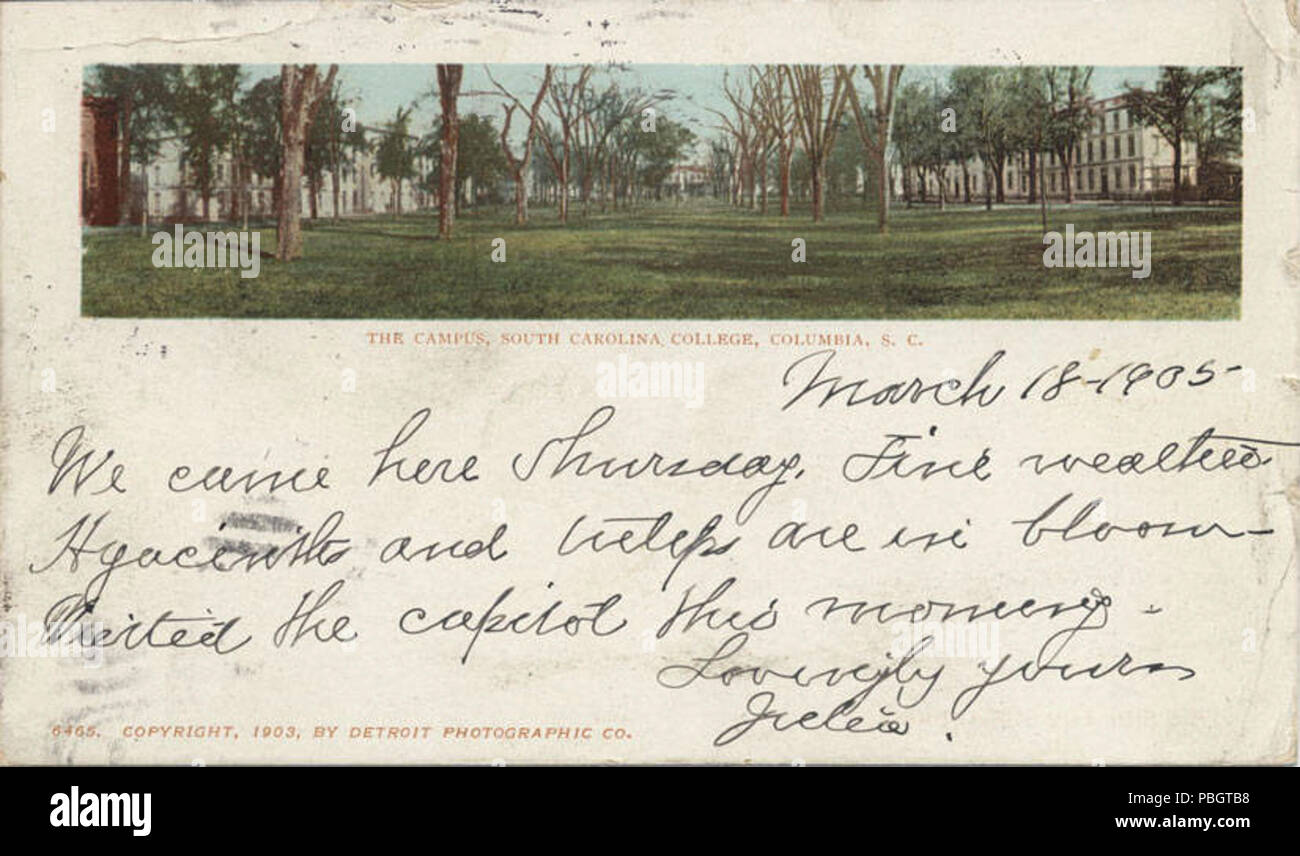 THE CAMPUS, SOUTH CAROLINA COLLEGE, COLUMBIA, S. C.
March 18-1905-
We came here Thursday. Fine weather
Hyacinths and tulips are in bloom-
Visited the capitol this morning.
Lovingly yours
6465. COPYRIGHT, 1903, BY DETROIT PHOTOGRAPHIC CO.
alamy
alamy
Image ID: PBGTB8
www.alamy.com